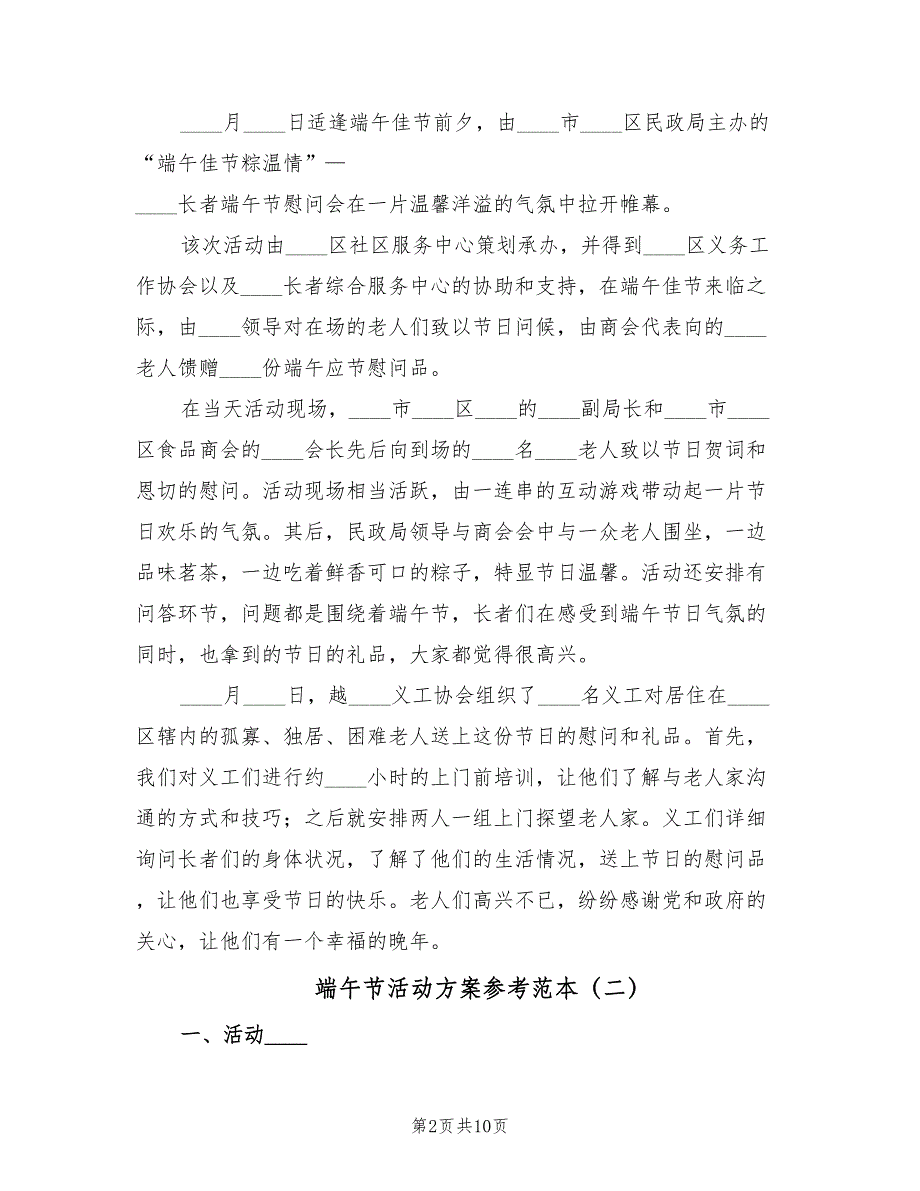 ____月____日适逢端午佳节前夕，由____市____区民政局主办的
“端午佳节粽温情”—
____长者端午节慰问会在一片温馨洋溢的气氛中拉开帷幕。
该次活动由____区社区服务中心策划承办，并得到____区义务工
作协会以及____长者综合服务中心的协助和支持，在端午佳节来临之
际，由____领导对在场的老人们致以节日问候，由商会代表向的____
老人馈赠____份端午应节慰问品。
在当天活动现场，____市____区____的____副局长和____市____
区食品商会的____会长先后向到场的____名____老人致以节日贺词和
恩切的慰问。活动现场相当活跃，由一连串的互动游戏带动起一片节
日欢乐的气氛。其后，民政局领导与商会会中与一众老人围坐，一边
品味茗茶，一边吃着鲜香可口的粽子，特显节日温馨。活动还安排有
问答环节，问题都是围绕着端午节，长者们在感受到端午节日气氛的
同时，也拿到的节日的礼品，大家都觉得很高兴。
____月____日，越____义工协会组织了____名义工对居住在____
区辖内的孤寡、独居、困难老人送上这份节日的慰问和礼品。首先，
我们对义工们进行约____小时的上门前培训，让他们了解与老人家沟
通的方式和技巧；之后就安排两人一组上门探望老人家。义工们详细
询问长者们的身体状况，了解了他们的生活情况，送上节日的慰问品
，让他们也享受节日的快乐。老人们高兴不已，纷纷感谢党和政府的
关心，让他们有一个幸福的晚年。
端午节活动方案参考范本（二）
一、活动____
第2页共10页